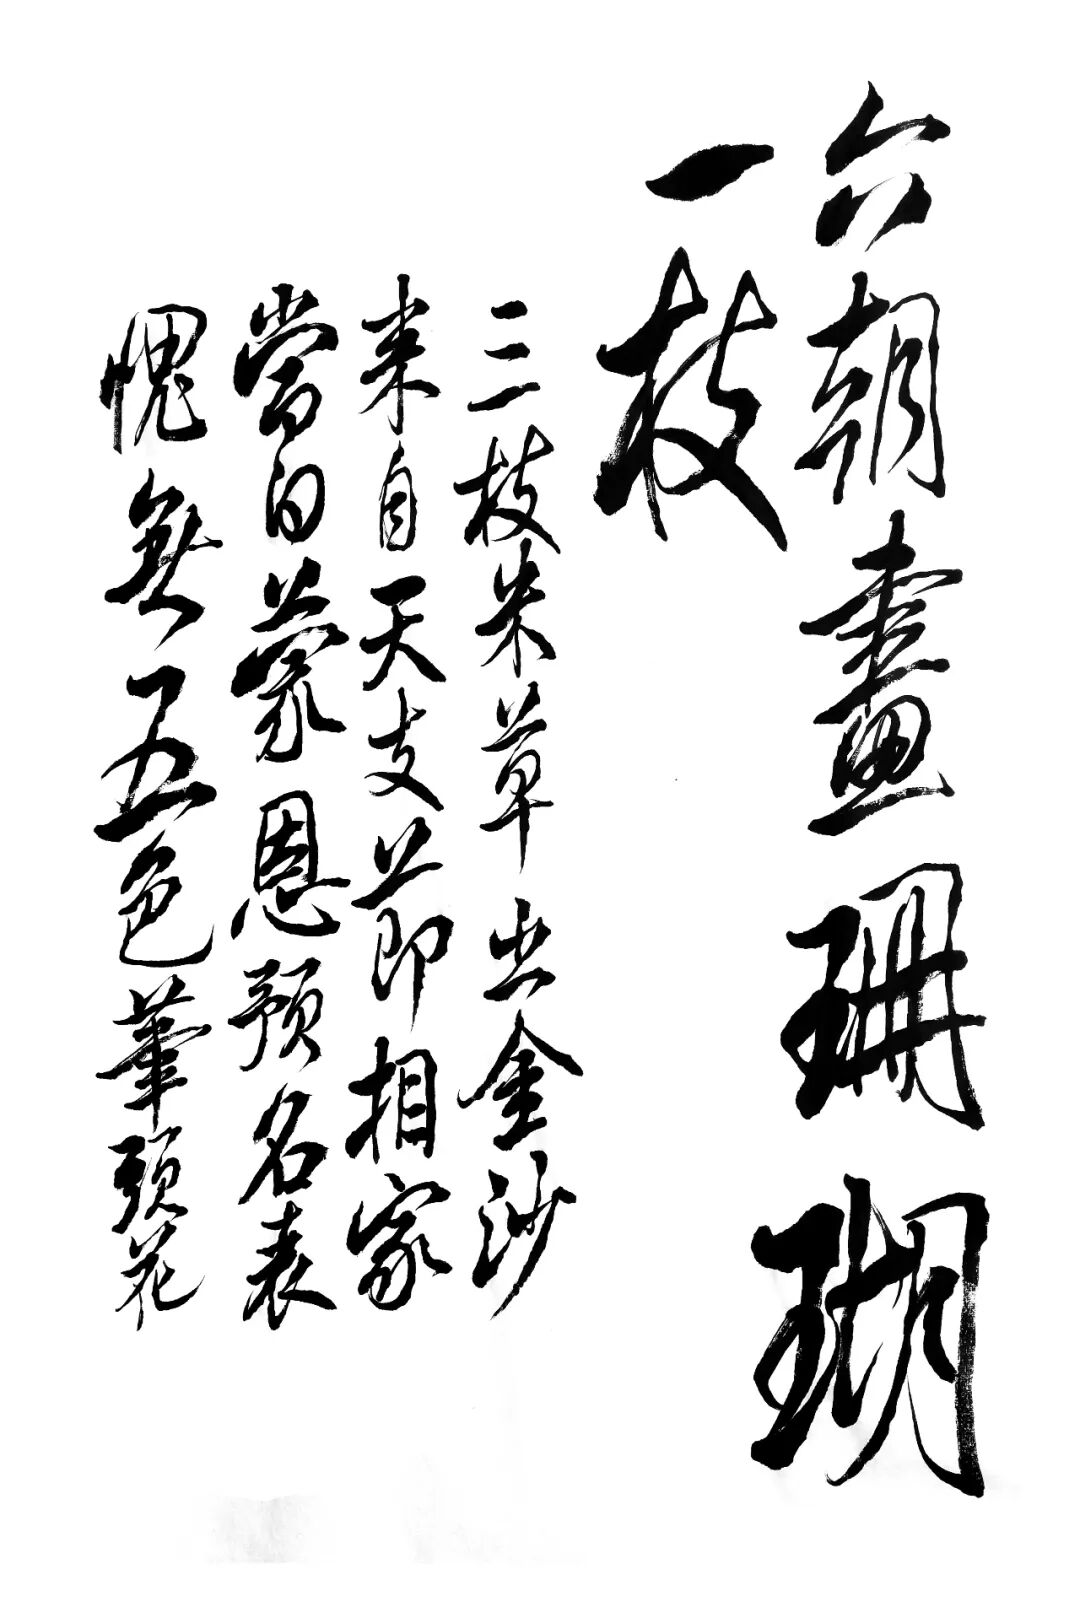 六朝畫珊瑚
一枝
三枝朱草出金沙
来自天支節相家
當日蒙恩預名表
愧無五色筆頭花